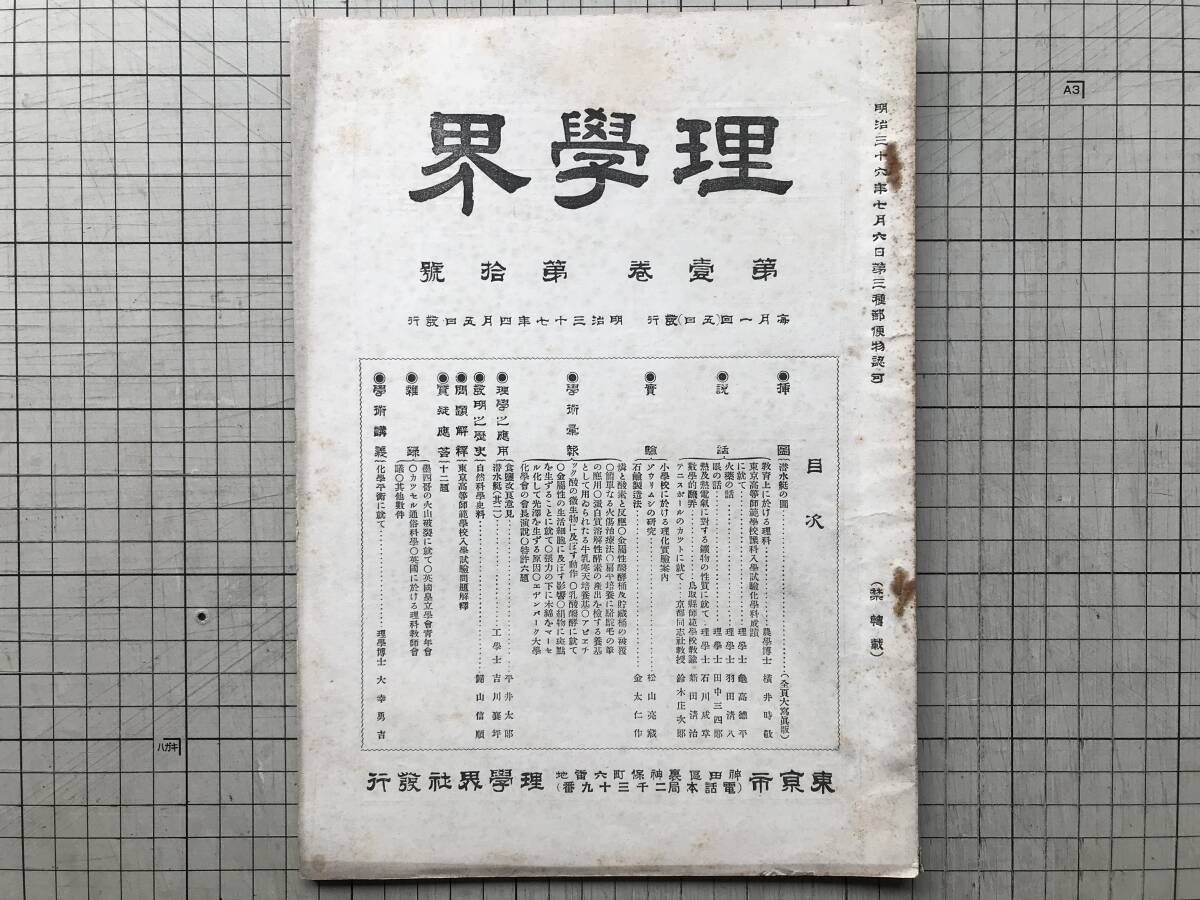 明治三十六年七月六日第三種郵便物認可
理學界
第壹卷第拾號
每月一回(五日)發行 明治三十七年四月五日發行
目次
(禁轉載)
●插圖
潜水艇の圖…………(全頁大寫眞版)
●說話
教育上に於ける理科…………農學博士 橫井時敬
東京高等師範學校豫科入學試驗化學科成蹟
に就て…………理學士 龜高德平
火藥の話…………理學士 羽田淸八
眼の話…………理學士 田中三四郎
熱及熱電氣に對する鑛物の性質に就て…理學士 石川成章
數學的飜弄…………鳥取縣師範學校敎諭 新田淸治
アニスポールのカットに就て…………京都同志社敎授 鈴木庄次郎
●實驗
小學校に於ける理化實驗案内
ザウリムシの研究…………松山亮藏
石鹼製造法…………金太仁作
●學術彙報
燐と酸素と反應〇金屬性醱酵桶及貯藏桶の被覆
〇簡單なる火傷治療法〇扁平培養に駱駝毛の筆
の應用〇蛋白質溶解性酵素の產出を檢する養基
として用ゐられたる牛乳寒天培養基〇アビエチ
ック酸の微生物に及ぼす動作〇乳酸醱酵に就て
〇金屬性の生活細胞に及ぼす影響〇絹物に斑點
を生ずることに就て〇張力の下に木綿をマーセ
ル化して光澤を生ずる原因〇エデンバーク大學
化學會の會長演說〇特許六題
●理學之應用
食鹽改良意見…………平井太郎
潜水艇(其二)…………工學士 吉川襄坪
●說明之歷史
自然科學史料…………歸山信順
●問題解釋
東京高等師範學校入學試驗問題解釋
●質疑應答
十二題
●雜錄
墨四哥の火山破裂に就て〇英國皇立學會靑年會
〇カッセル通俗科學〇英國に於ける理科敎師會
議〇其他數件
●學術講義
化學平衡に就て…………理學博士 大幸勇吉
東京市(神田區裏神保町六番地 電話本局二千三十九番)理學界社發行
A3
ハガキ